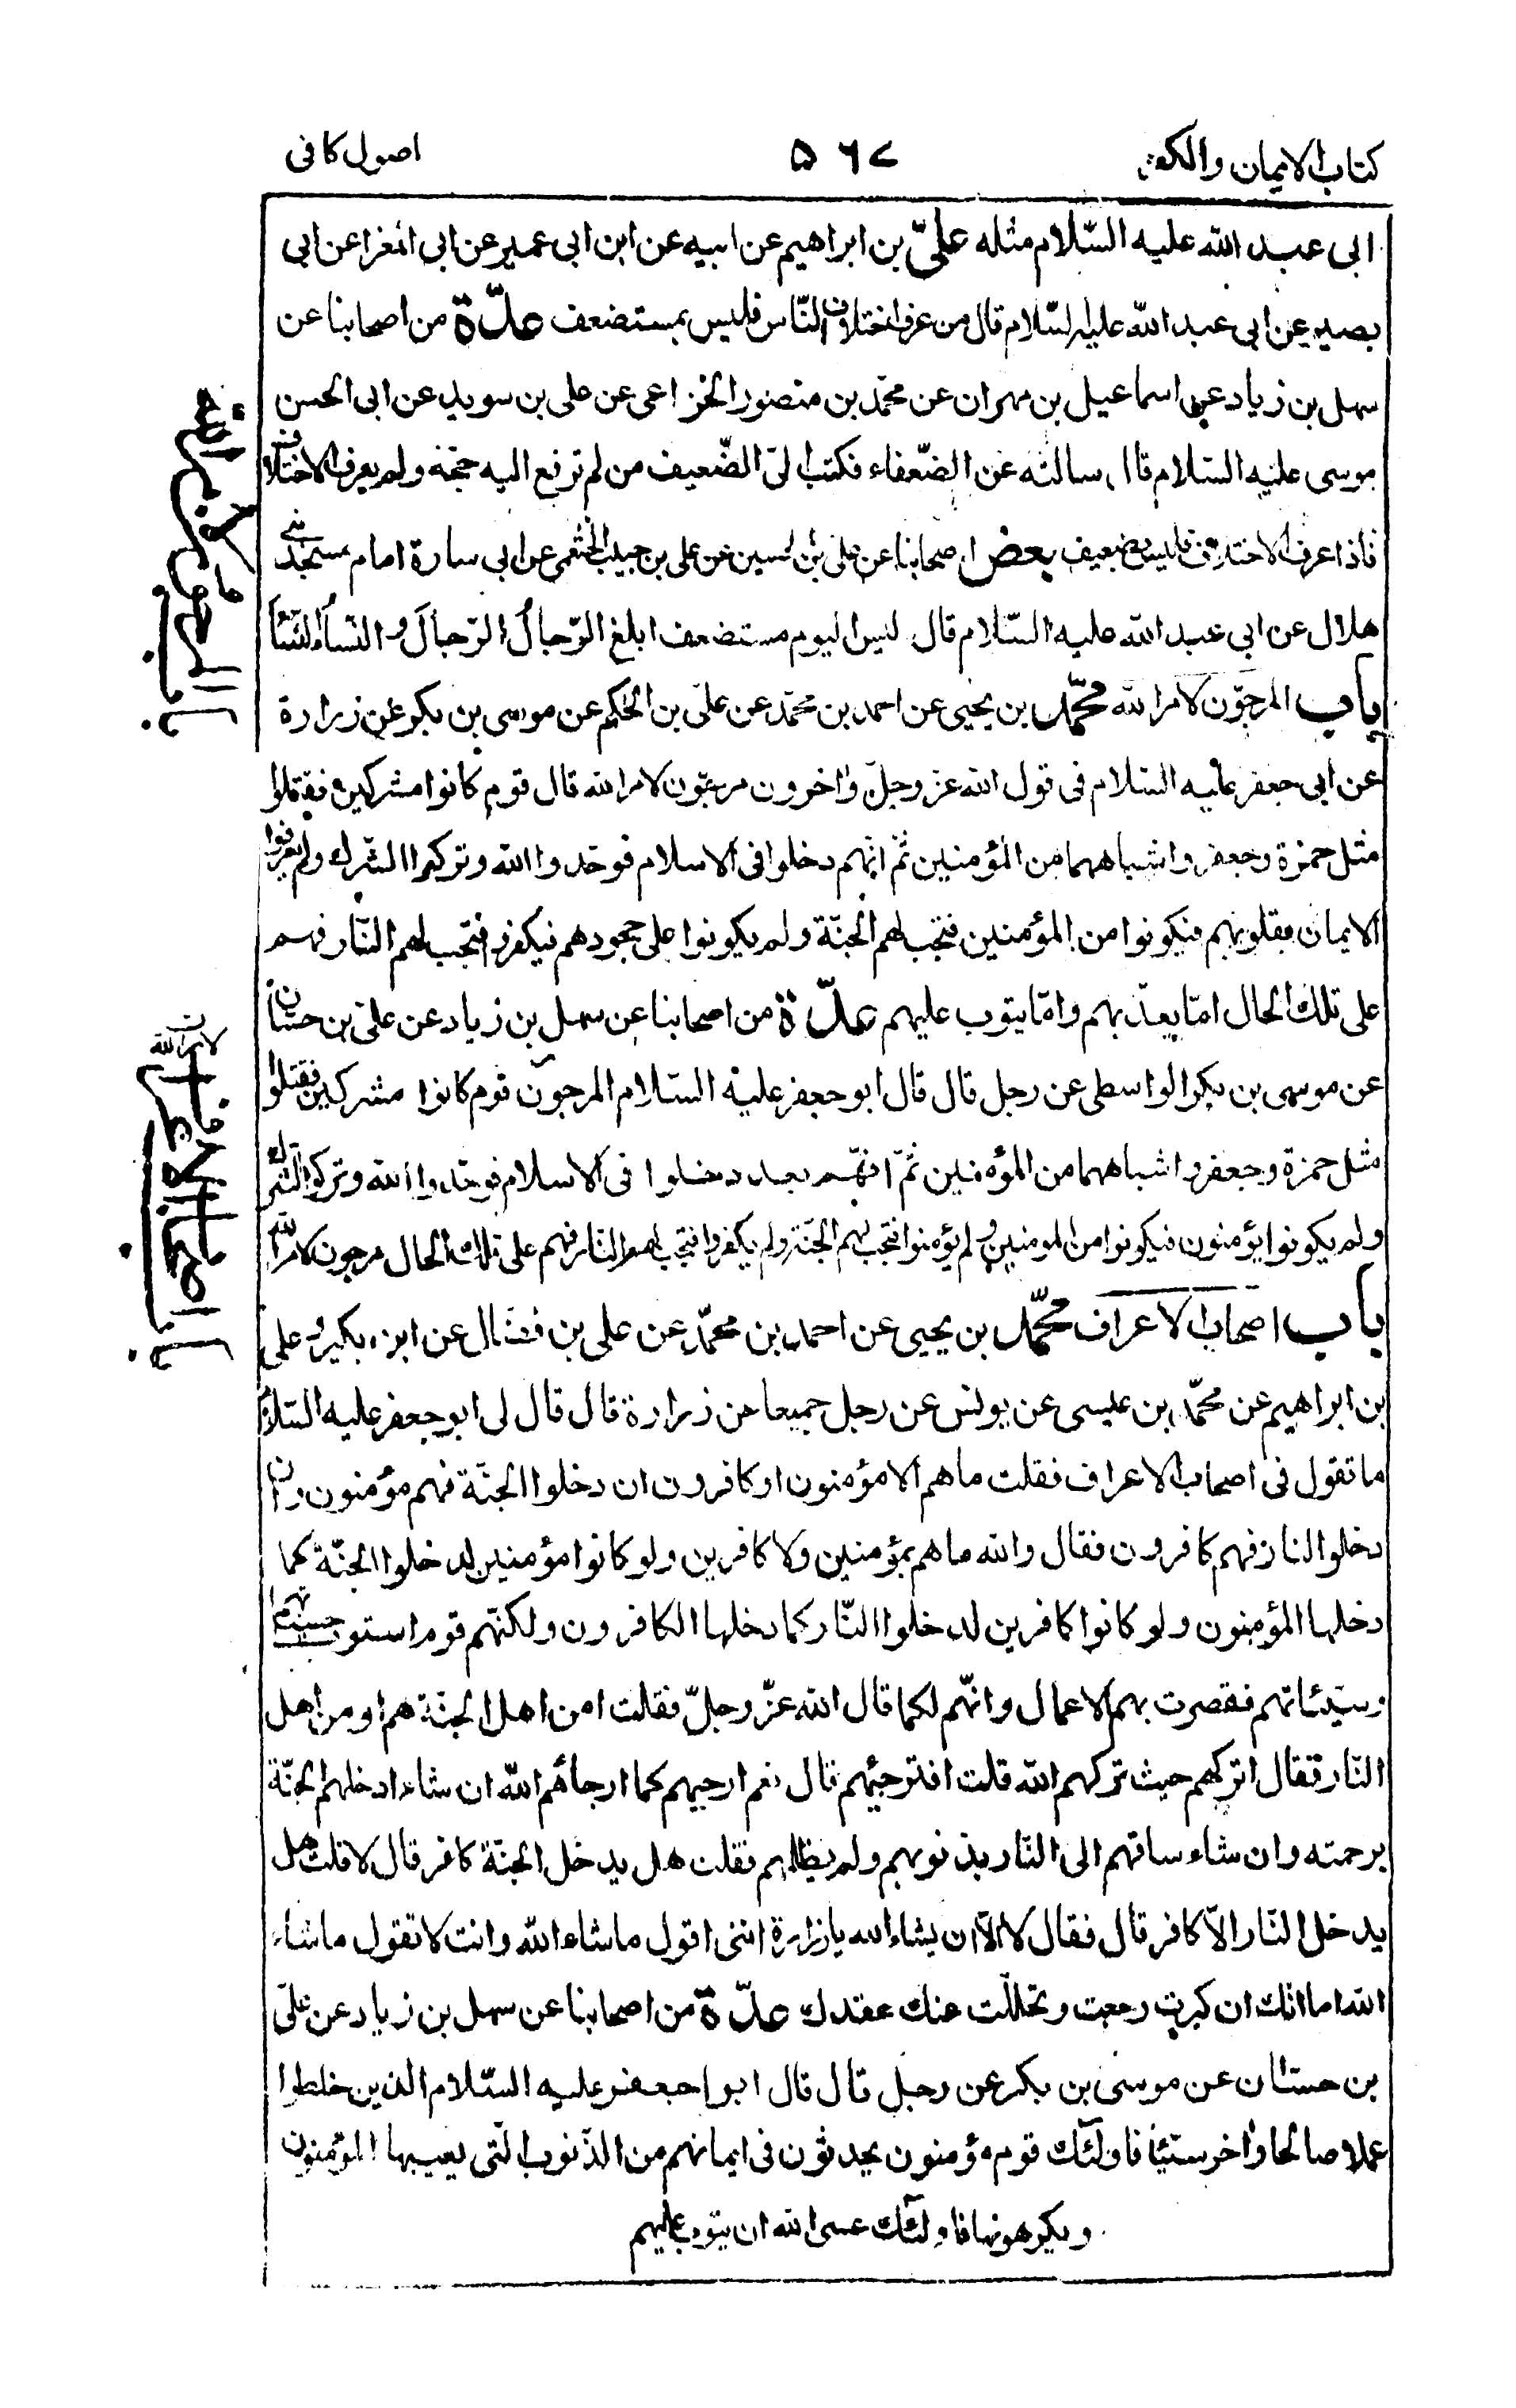 كتاب الايمان والكفر
۵۶۷
اصول كافى
ابى عبد الله عليه السّلام مثله علىّ بن ابراهيم عن ابيه عن ابن ابى عمير عن ابى المغرا عن ابى
بصير عن ابى عبد الله عليه السّلام قال من عرف اختلاف النّاس فليس بمستضعف عدّة من اصحابنا عن
سهل بن زياد عن اسماعيل بن مهران عن محمّد بن منصور الخزاعى عن على بن سويد عن ابى الحسن
موسى عليه السّلام قال سالته عن الضّعفاء فكتب الىّ الضّعيف من لم ترفع اليه حجّة ولم يعرف الاختلاف
فاذا عرف الاختلاف فليس بضعيف بعض اصحابنا عن على بن الحسين عن على بن حبيب الخثعمى عن ابى سارة امام مسجد بنى
هلال عن ابى عبد الله عليه السّلام قال ليس اليوم مستضعف ابلغ الرّجالُ الرّجالَ والنّساءُ النّساءَ
باب المرجوّن لامر الله محمّد بن يحيى عن احمد بن محمّد عن علىّ بن الحكم عن موسى بن بكر عن زرارة
عن ابى جعفر عليه السّلام فى قول الله عز وجلّ واخرون مرجون لامر الله قال قوم كانوا مشركين فقتلوا
مثل حمزة وجعفر واشباههما من المؤمنين ثمّ انّهم دخلوا فى الاسلام فوحّدوا الله وتركوا الشّرك ولم يعرفوا
الايمان بقلوبهم فيكونوا من المؤمنين فتجب لهم الجنّة ولم يكونوا على جحودهم فيكفروا فتجب لهم النّار فهم
على تلك الحال امّا يعذّبهم وامّا يتوب عليهم عدّة من اصحابنا عن سهل بن زياد عن علىّ بن حسّان
عن موسى بن بكر الواسطى عن رجل قال قال ابو جعفر عليه السّلام المرجوّن قوم كانوا مشركين فقتلوا
مثل حمزة وجعفر واشباههما من المؤمنين ثمّ انّهم بعد دخلوا فى الاسلام فوحّدوا الله وتركوا الشّرك
ولم يكونوا يؤمنون فيكونوا من المومنين ولم يؤمنوا فتجب لهم الجنّة ولم يكفروا فتجب لهم النّار فهم على تلك الحال مرجون لامر الله
باب اصحاب الاعراف محمّد بن يحيى عن احمد بن محمّد عن على بن فضّال عن ابن بكير وعلى
بن ابراهيم عن محمّد بن عيسى عن يونس عن رجل جميعا عن زرارة قال قال لى ابو جعفر عليه السّلام
ما تقول فى اصحاب الاعراف فقلت ما هم الا مؤمنون او كافرون ان دخلوا الجنّة فهم مؤمنون وان
دخلوا النار فهم كافرون فقال والله ما هم بمؤمنين ولا كافرين ولو كانوا مؤمنين لدخلوا الجنّة كما
دخلها المؤمنون ولو كانوا كافرين لدخلوا النّار كما دخلها الكافرون ولكنّهم قوم استوت حسناتهم
وسيّئاتهم فقصرت بهم الاعمال وانّهم لكما قال الله عزّ وجلّ فقلت امن اهل الجنّة هم او من اهل
النّار فقال اتركهم حيث تركهم الله قلت افترجئهم قال نعم ارجيهم كما ارجاهم الله ان شاء ادخلهم الجنّة
برحمته وان شاء ساقهم الى النّار بذنوبهم ولم يظلمهم فقلت هل يدخل الجنّة كافر قال لا قلت هل
يدخل النّار الّا كافر قال فقال لا الّا ان يشاء الله يا زرارة اننى اقول ما شاء الله وانت لا تقول ما شاء
الله اما انّك ان كبرت رجعت وتحلّلت عنك عقدك عدّة من اصحابنا عن سهل بن زياد عن علىّ
بن حسّان عن موسى بن بكر عن رجل قال قال ابو جعفر عليه السّلام الذين خلطوا
عملا صالحا واخر سيّئا فاولئك قوم مؤمنون يحدثون فى ايمانهم من الذّنوب الّتى يعيبها المؤمنون
ويكرهونها فاولئك عسى الله ان يتوب عليهم
باب المرجون لامر الله
باب اصحاب الاعراف